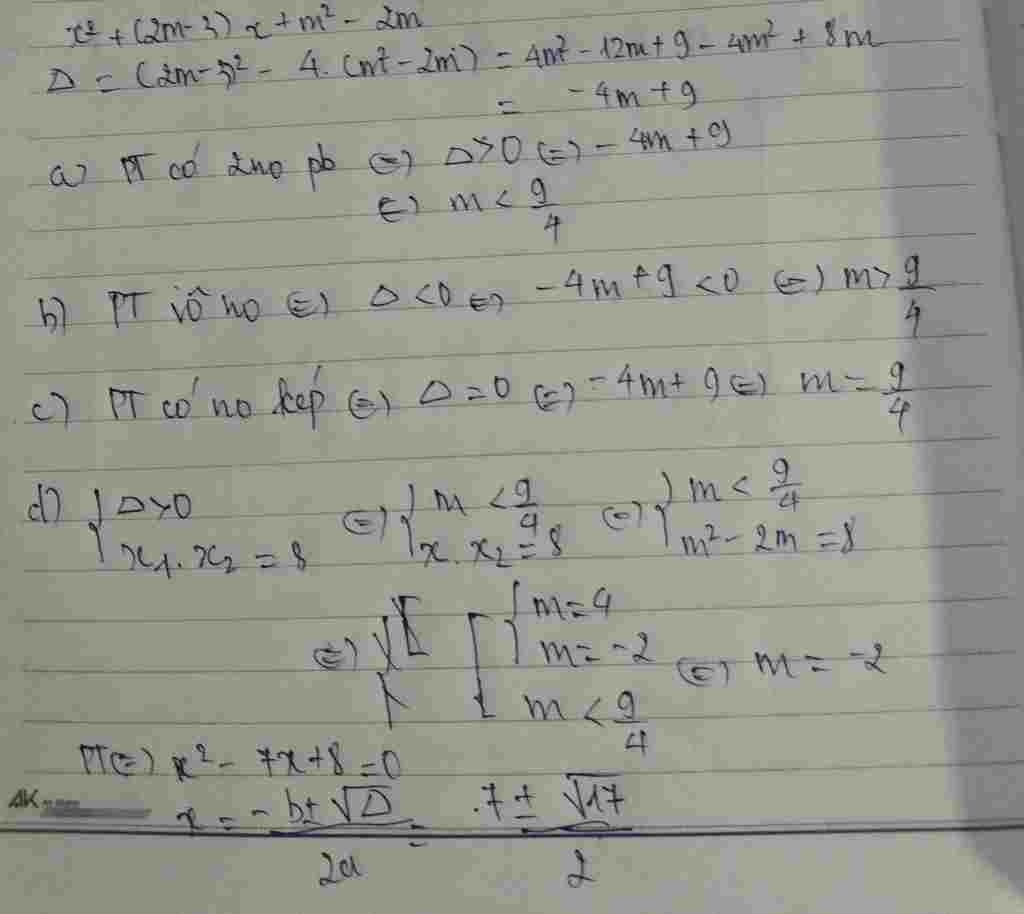 x² + (2m-3)x + m² - 2m
Δ = (2m-3)² - 4.(m² - 2m) = 4m² - 12m + 9 - 4m² + 8m
= -4m + 9
a) PT có 2no pb (=) Δ>0 (=) -4m + 9
(=) m < 9/4
b) PT vô no (=) Δ<0 (=) -4m+9 <0 (=) m > 9/4
c) PT có no kép (=) Δ=0 (=) -4m+9 (=) m = 9/4
d) { Δ>0 (=) { m < 9/4 (=) { m < 9/4
x₁.x₂ = 8 x.x₂ = 8 m² - 2m = 8
(=) [ { m=4
m = -2 (=) m = -2
m < 9/4
PT(=) x² - 7x+8 =0
AK
x = -b±√Δ / 2a = 7 ± √17 / 2